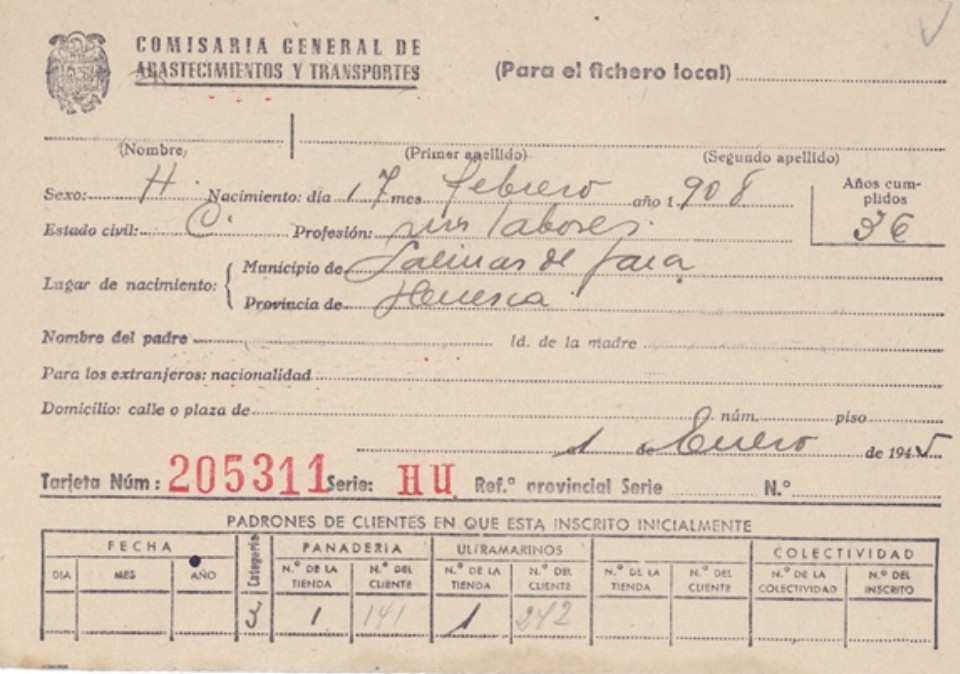 COMISARIA GENERAL DE
ABASTECIMIENTOS Y TRANSPORTES
(Para el fichero local)
(Nombre) (Primer apellido) (Segundo apellido)
Sexo: H. Nacimiento: día 17 mes febrero año 1.908 Años cum-
plidos
36
Estado civil: C. Profesión: sus labores.
Lugar de nacimiento: Municipio de Salinas de Jaca
Provincia de Huesca
Nombre del padre Id. de la madre
Para los extranjeros: nacionalidad
Domicilio: calle o plaza de núm. piso
1 de Enero de 1945
Tarjeta Núm: 205311 Serie: HU Ref.ª provincial Serie N.°
PADRONES DE CLIENTES EN QUE ESTA INSCRITO INICIALMENTE
FECHA Categoría PANADERIA ULTRAMARINOS COLECTIVIDAD
DIA MES AÑO N.° DE LA TIENDA N.° DEL CLIENTE N.° DE LA TIENDA N.° DEL CLIENTE N.° DE LA TIENDA N.° DEL CLIENTE N.° DE LA COLECTIVIDAD N.° DEL INSCRITO
3 1 141 1 242